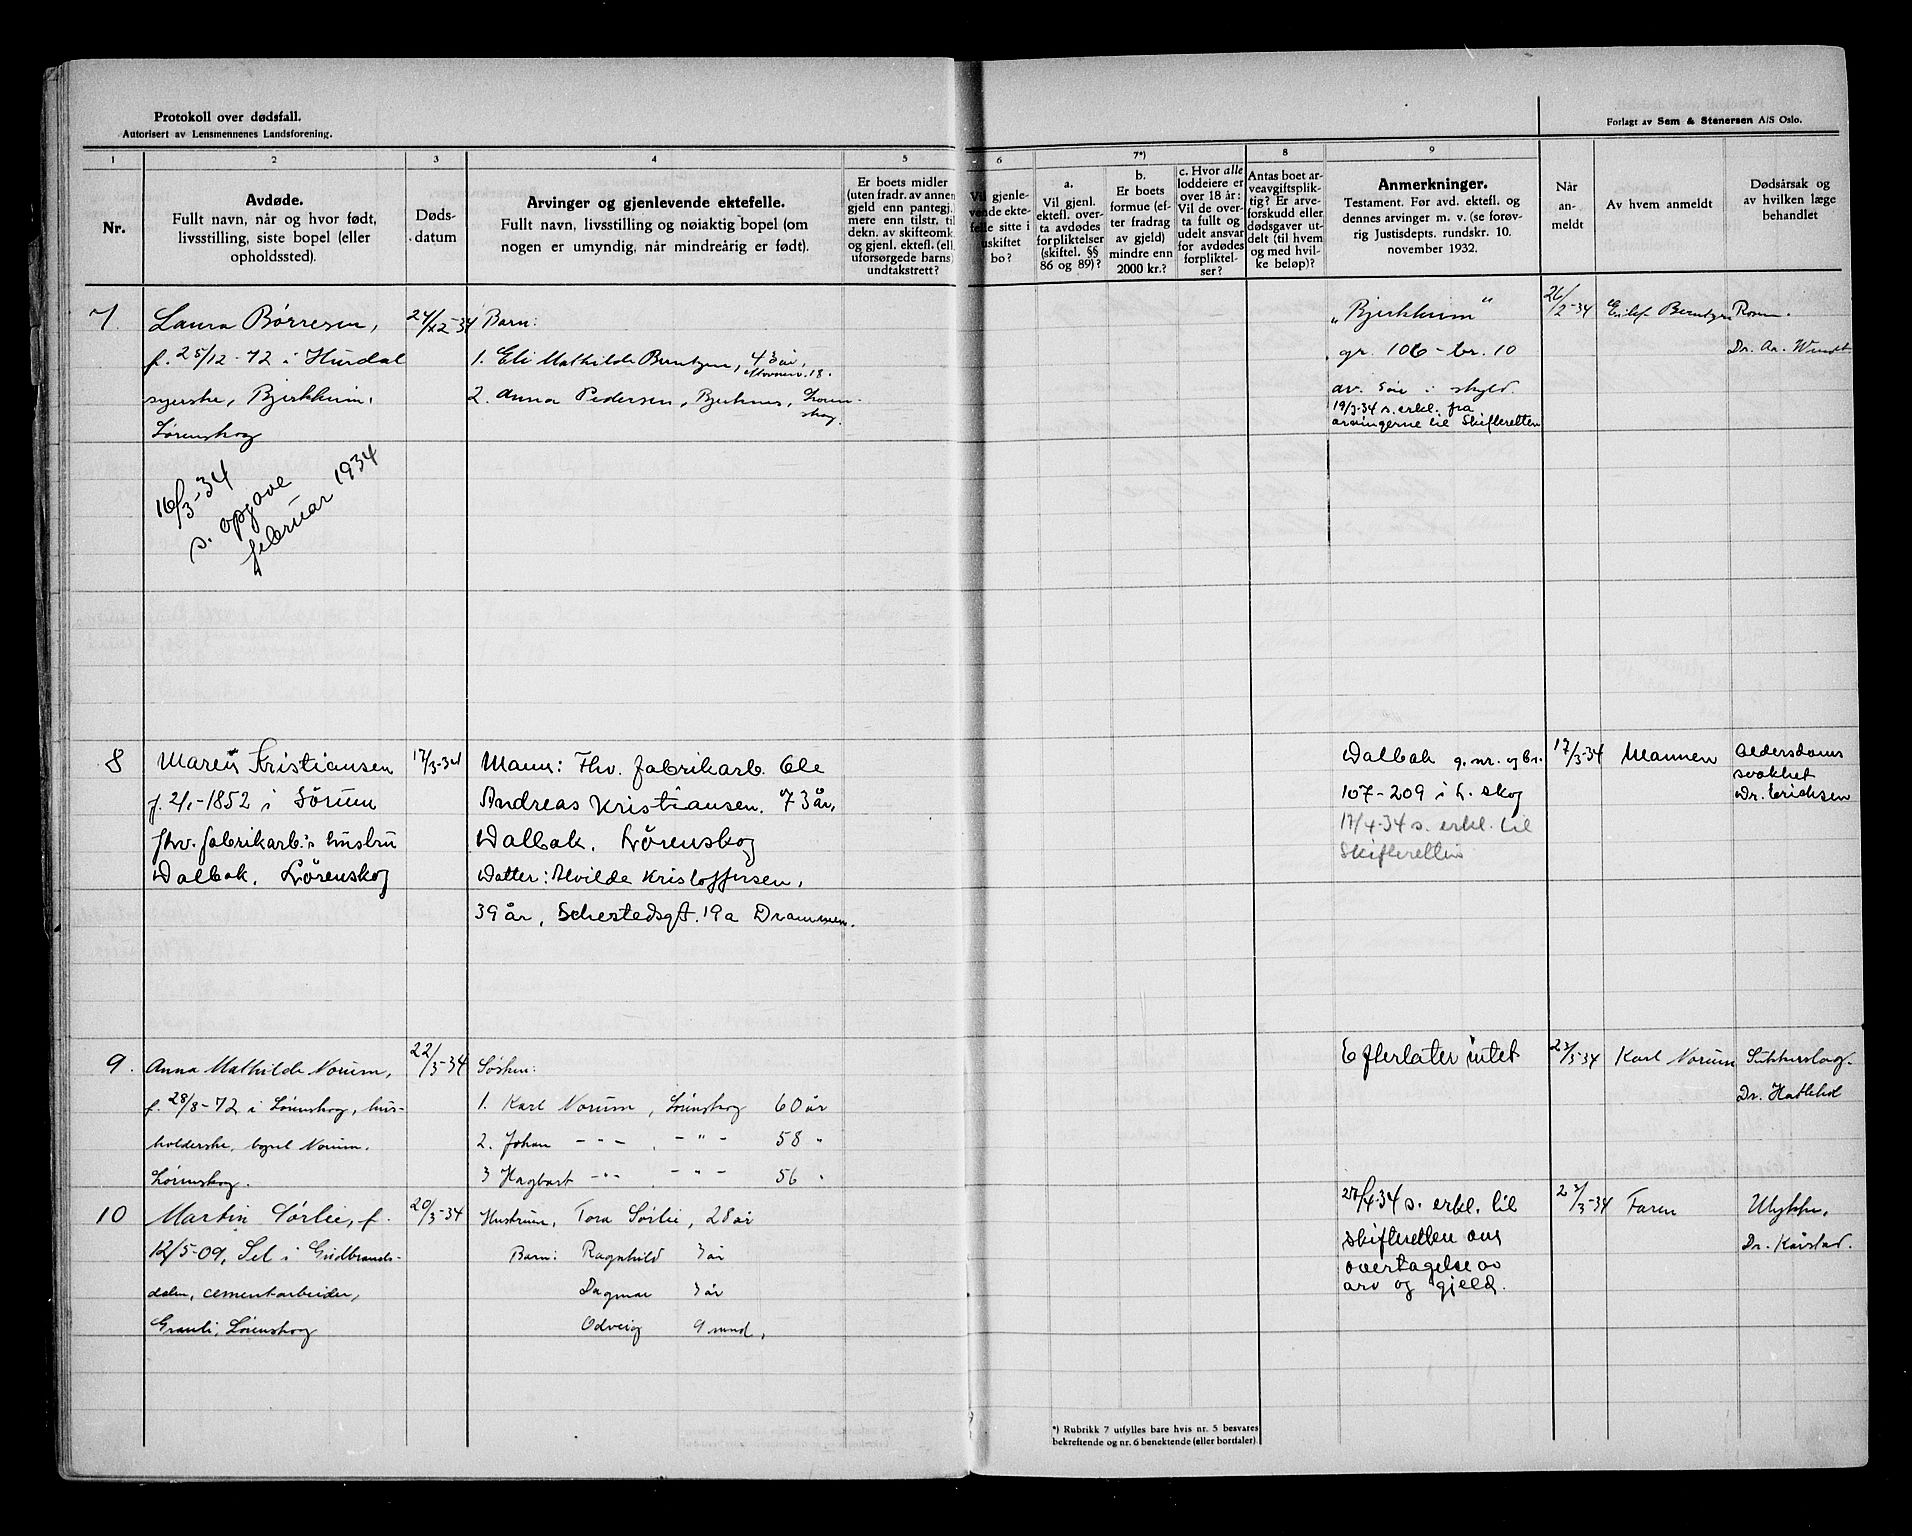 Protokoll over dødsfall.
Autorisert av Lensmennenes Landsforening.
Forlagt av Sem & Stenersen A/S Oslo.
1 2 3 4 5 6 7*) 8 9
Nr.
Avdøde.
Fullt navn, når og hvor født,
livsstilling, siste bopel (eller
opholdssted).
Døds-
datum
Arvinger og gjenlevende ektefelle.
Fullt navn, livsstilling og nøiaktig bopel (om
nogen er umyndig, når mindreårig er født).
Er boets midler
(uten fradr. av annen
gjeld enn pantegj.)
mere enn tilstr. til
dekn. av skifteomk.
og gjenl. ektef. (ell.
uforsørgede barns)
undtakstrett?
Vil gjenle-
vende ekte-
felle sitte i
uskiftet
bo?
a.
Vil gjenl.
ektefl. over-
ta avdødes
forpliktelser
(skiftel. §§
86 og 89)?
b.
Er boets
formue (ef-
ter fradrag
av gjeld)
mindre enn
2000 kr.?
c. Hvor alle
loddeiere er
over 18 år:
Vil de over-
ta fullt og
udelt ansvar
for avdødes
forpliktel-
ser?
Antas boet ar-
veavgiftsplik-
tig? Er arve-
forskudd eller
dødsgaver ut-
delt (til hvem
og med hvil-
ke beløp)?
Anmerkninger.
Testament. Før avd. ektefl. og
dennes arvinger m. v. (se forøv-
rig Justisdepts. rundskr. 10.
november 1932.
Når
an-
meldt
Av hvem anmeldt
Dødsårsak og
av hvilken læge
behandlet
7.
Laura Børresen,
f. 25/12-72 i Hurdal
syerske, Bjerkheim,
Lørenskog
16/3-34
s. opgave
februar 1934
Barn:
1. Eli Mathilde Berntzen, 43 år,
2. Anna Pedersen, Løren-
skog.
"Bjerkheim"
gr. 106 - br. 10
av. søie i skyld.
19/3-34 s. erkl. fra
arvingerne til Skifteretten
26/2-34
Dr. Aa. Windt
8
Maren Kristiansen
f. 2/1-1852 i Sørum
fhv. fabrikarb.s hustru
Dalbak, Lørenskog
17/3-34
Mann: Fhv. fabrikarb. Ole
Andreas Kristiansen. 73 år,
Dalbak, Lørenskog
Datter: Alvilde Kristoffersen,
39 år, Schestedsgt. 19a Drammen.
Dalbak g.nr. og br.
107-209 i L. skog
17/4-34 s. erkl. til
Skifteretten
17/3-34
Mannen
Alderdoms
svakhet
Dr. Erichsen
9.
Anna Mathilde Norum,
f. 28/8-72 i Lørenskog, hus-
holderske, bopel Norum,
Lørenskog.
22/3-34
Søsken:
1. Karl Norum, Lørenskog 60 år
2. Johan - " - , - " - 58 "
3 Hagbart - " - . - " - 56 "
Efterlater intet
23/3-34
Karl Norum
Dr. Hatlehol
10
Martin Sørlie, f.
12/5-09, Sel i Gudbrands-
dalen, cementarbeider,
Granli, Lørenskog
20/3-34
Hustrum, Tora Sørlie, 28 år
Barn: Ragnhild 3 år
Dagmar 3 år
Odveig 9 mnd,
27/4-34 s. erkl. til
skifteretten om
overtagelse av
arv og gjeld.
23/3-34
Faren
Ulykke,
Dr. Kårstad.
*) Rubrikk 7 utfylles bare hvis nr. 5 besvares
bekreftende og nr. 6 benektende (eller bortfaler)